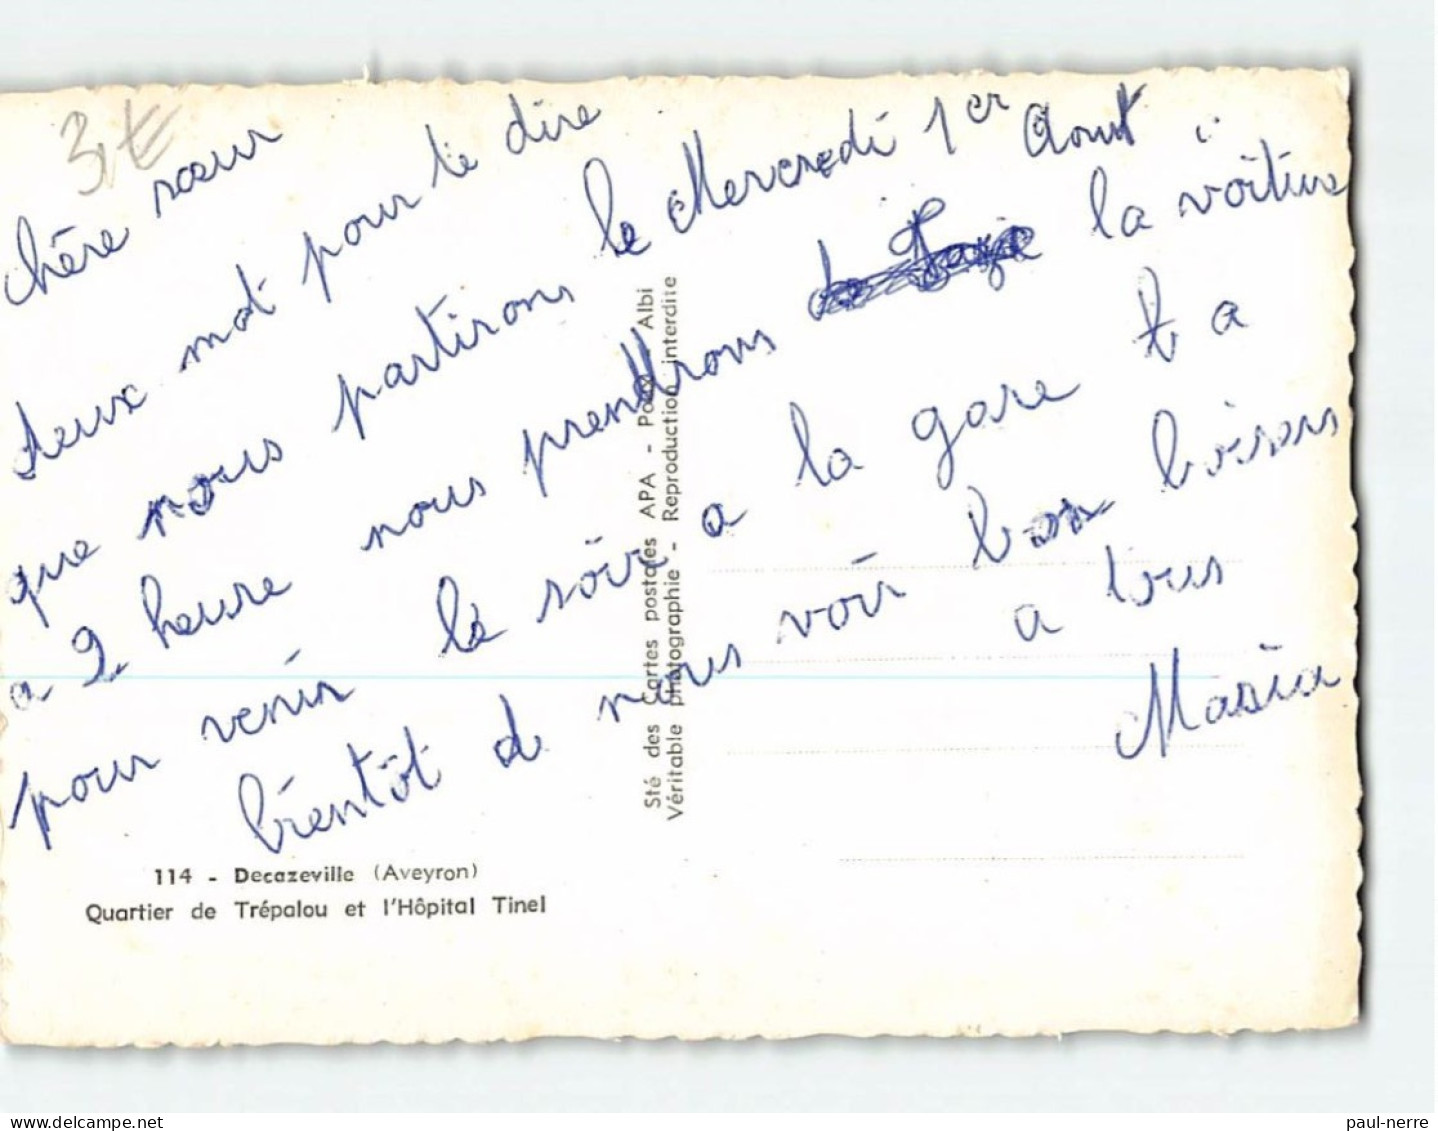 3,€
chère sœur
deux mot pour te dire
que nous partirons le Mercredi 1er Aout
a 2 heure nous prendrons la voiture
pour venir le soir a la gare t a
bientôt d nous voir bon boisons
a tous
Maria
114 - Decazeville (Aveyron)
Quartier de Trépalou et l'Hôpital Tinel
Sté des Cartes postales APA - Poux Albi
Véritable photographie - Reproduction interdite
paul-nerre